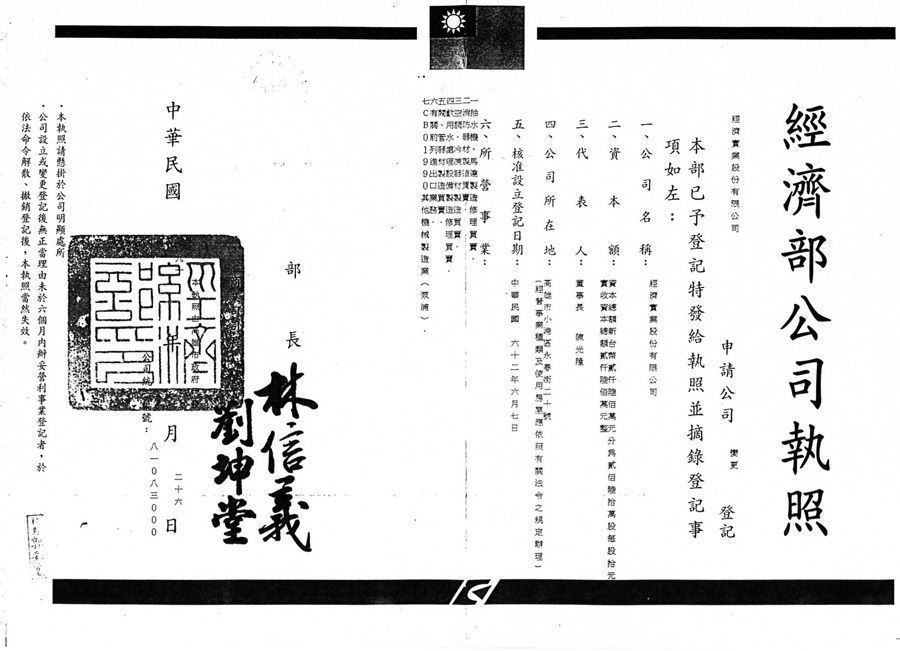 經濟部公司執照
經濟實業股份有限公司
申請公司 變更 登記
本部已予登記特發給執照並摘錄登記事
項如左：
一、公司名稱：經濟實業股份有限公司
二、資本額：資本總額新台幣貳仟陸佰萬元分為貳佰陸拾萬股每股拾元
實收資本總額貳仟陸佰萬元整
三、代表人：董事長 陳光隆
四、公司所在地：高雄市小港區永春街二十號
（經營事業種類及使用房屋應依照有關法令之規定辦理）
五、核准設立登記日期：中華民國 六十二年六月七日
六、所營事業：
一抽水機、馬達製造修理買賣．
四飲用水處理設備製造修理買賣．
六有關前列進出口業務．
七ＣＢ０１９９０其他機械製造業（泵浦）．
部長
林信義
劉坤堂
中華民國
年
月
二十六
日
號：
八一０八三０００
．本執照請懸掛於公司明顯處所
．公司設立或變更登記後無正當理由未於六個月內辦妥營利事業登記者，於
依法命令解散、撤銷登記後，本執照當然失效。